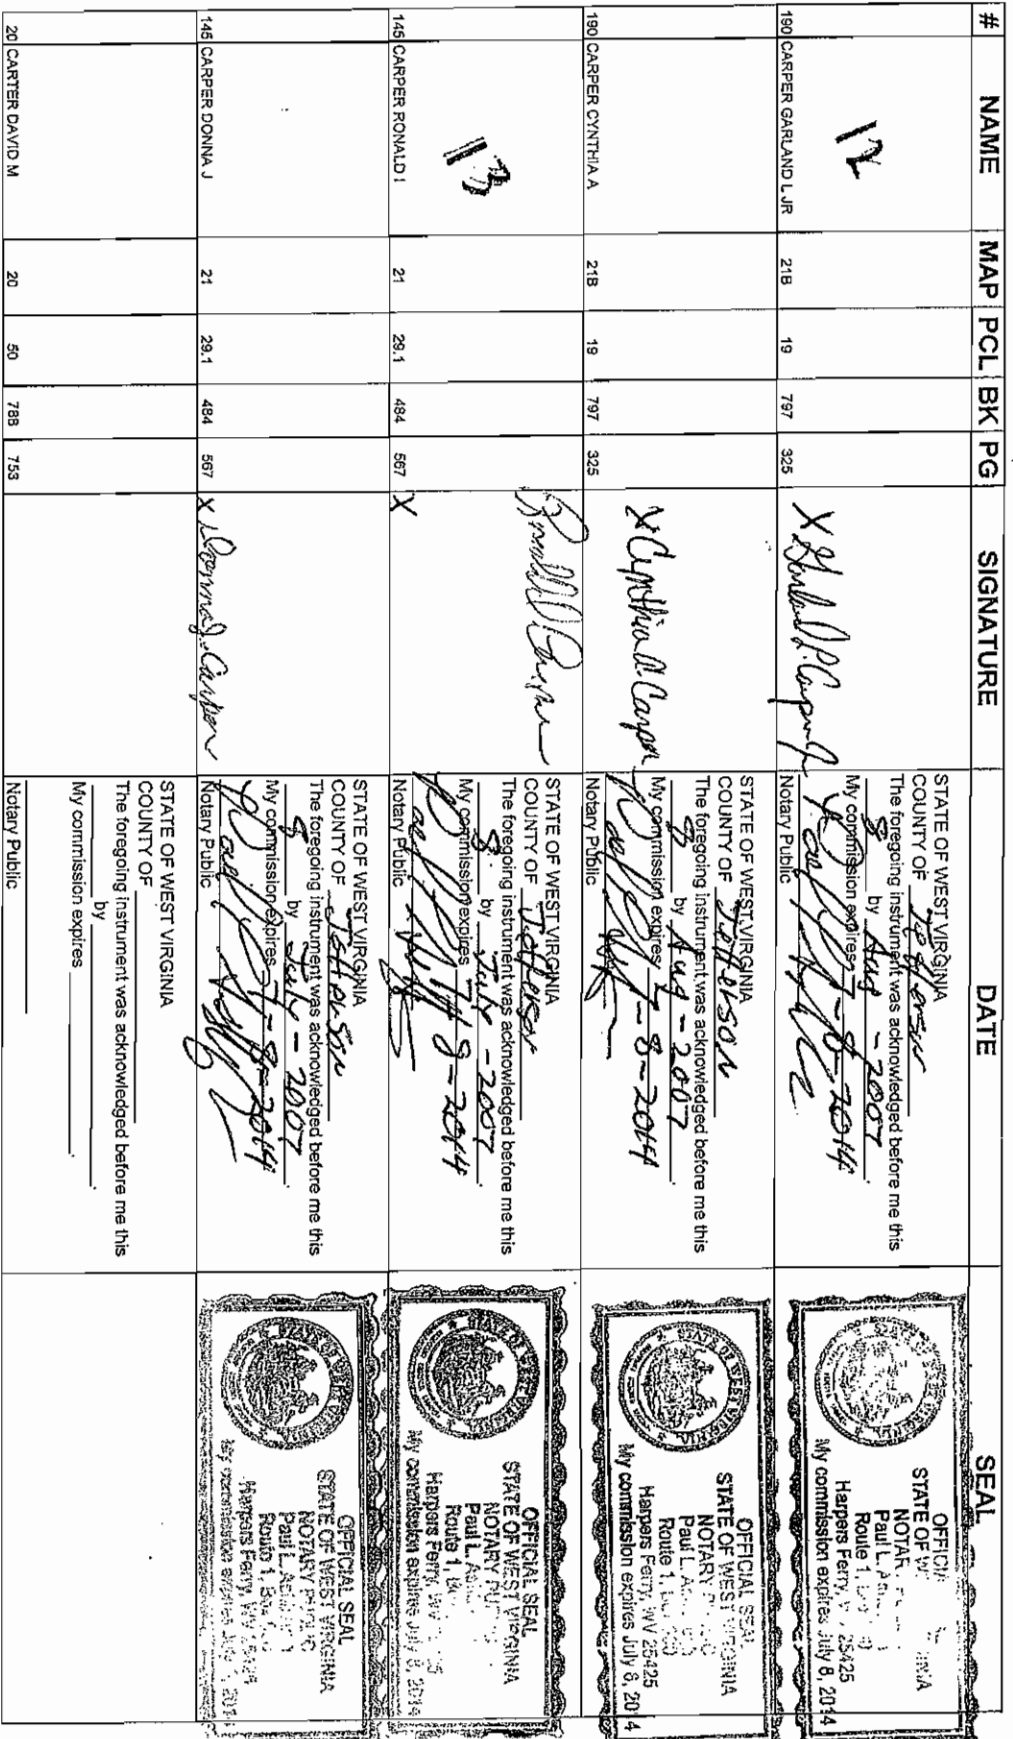 # NAME MAP PCL BK PG SIGNATURE DATE SEAL
12
190 CARPER GARLAND L JR 21B 19 797 325
X Garland L. Carper Jr
STATE OF WEST VIRGINIA
COUNTY OF Jefferson
The foregoing instrument was acknowledged before me this
8 by Aug - 2007.
My commission expires 7-8-2014
Notary Public
OFFICIAL
STATE OF
NOTAR
Paul L.
Route 1,
Harpers Ferry, 25425
My commission expires July 8, 2014
190 CARPER CYNTHIA A 21B 19 797 325
X Cynthia A. Carper
STATE OF WEST VIRGINIA
COUNTY OF Jefferson
The foregoing instrument was acknowledged before me this
8 by Aug - 2007
My commission expires 7-8-2014
Notary Public
STATE OF WEST VIRGINIA
OFFICIAL SEAL
STATE OF WEST VIRGINIA
NOTARY
Paul L.
Route 1,
Harpers Ferry, WV 25425
My commission expires July 8, 2014
13
145 CARPER RONALD I 21 29.1 484 567
X Ronald I Carper
STATE OF WEST VIRGINIA
COUNTY OF Jefferson
The foregoing instrument was acknowledged before me this
8 by July - 2007.
My commission expires 7-8-2014
Notary Public
STATE OF WEST VIRGINIA
OFFICIAL SEAL
STATE OF WEST VIRGINIA
NOTARY
Paul L.
Route 1,
Harpers Ferry, WV
My commission expires July 8, 2014
145 CARPER DONNA J 21 29.1 484 567
X Donna J. Carper
STATE OF WEST VIRGINIA
COUNTY OF Jefferson
The foregoing instrument was acknowledged before me this
8 by July - 2007.
My commission expires 7-8-2014
Notary Public
STATE OF WEST VIRGINIA
OFFICIAL SEAL
STATE OF WEST VIRGINIA
NOTARY
Paul L.
Route 1, Box
Harpers Ferry, WV
My commission expires July
20 CARTER DAVID M 20 50 788 753
STATE OF WEST VIRGINIA
COUNTY OF
The foregoing instrument was acknowledged before me this
by
My commission expires
Notary Public